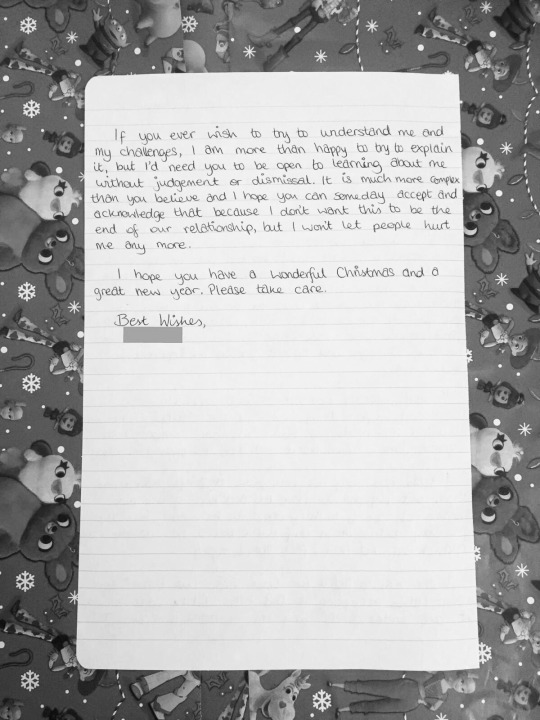 If you ever wish to try to understand me and
my challenges, I am more than happy to try to explain
it, but I'd need you to be open to learning about me
without judgement or dismissal. It is much more complex
than you believe and I hope you can someday accept and
acknowledge that because I don't want this to be the
end of our relationship, but I won't let people hurt
me any more.
I hope you have a wonderful Christmas and a
great new year. Please take care.
Best Wishes,